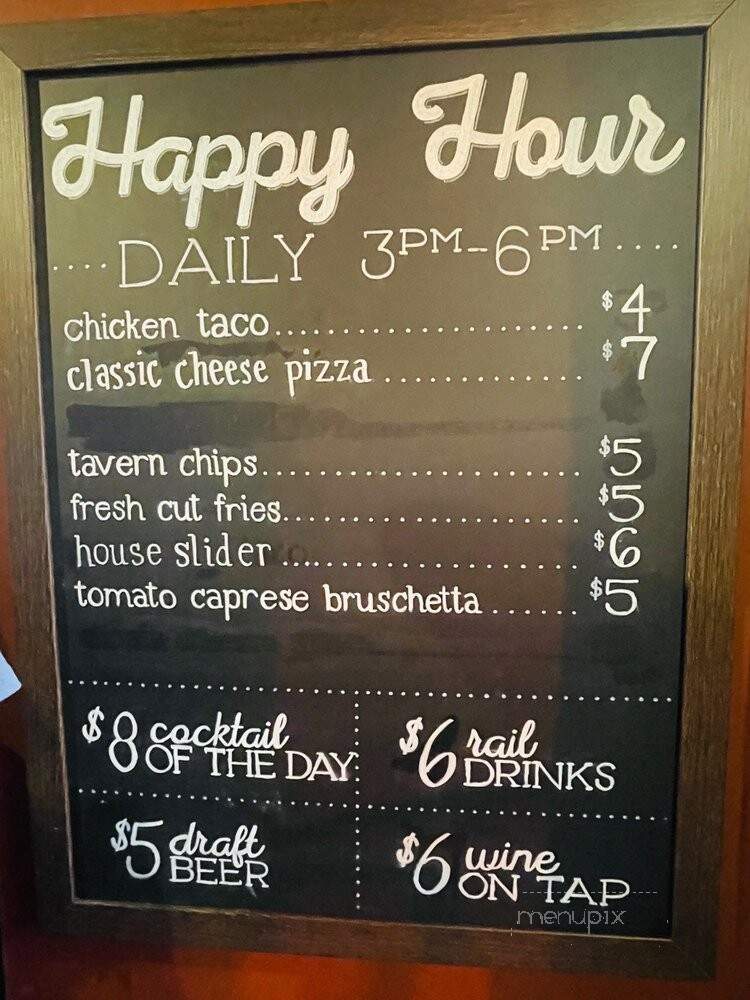 Happy Hour
....DAILY 3PM-6PM....
chicken taco........................... $4
classic cheese pizza .............. $7
tavern chips......................... $5
fresh cut fries....................... $5
house slider ....................... $6
tomato caprese bruschetta ...... $5
$8 cocktail OF THE DAY
$6 rail DRINKS
$5 draft BEER
$6 wine ON TAP
menupix